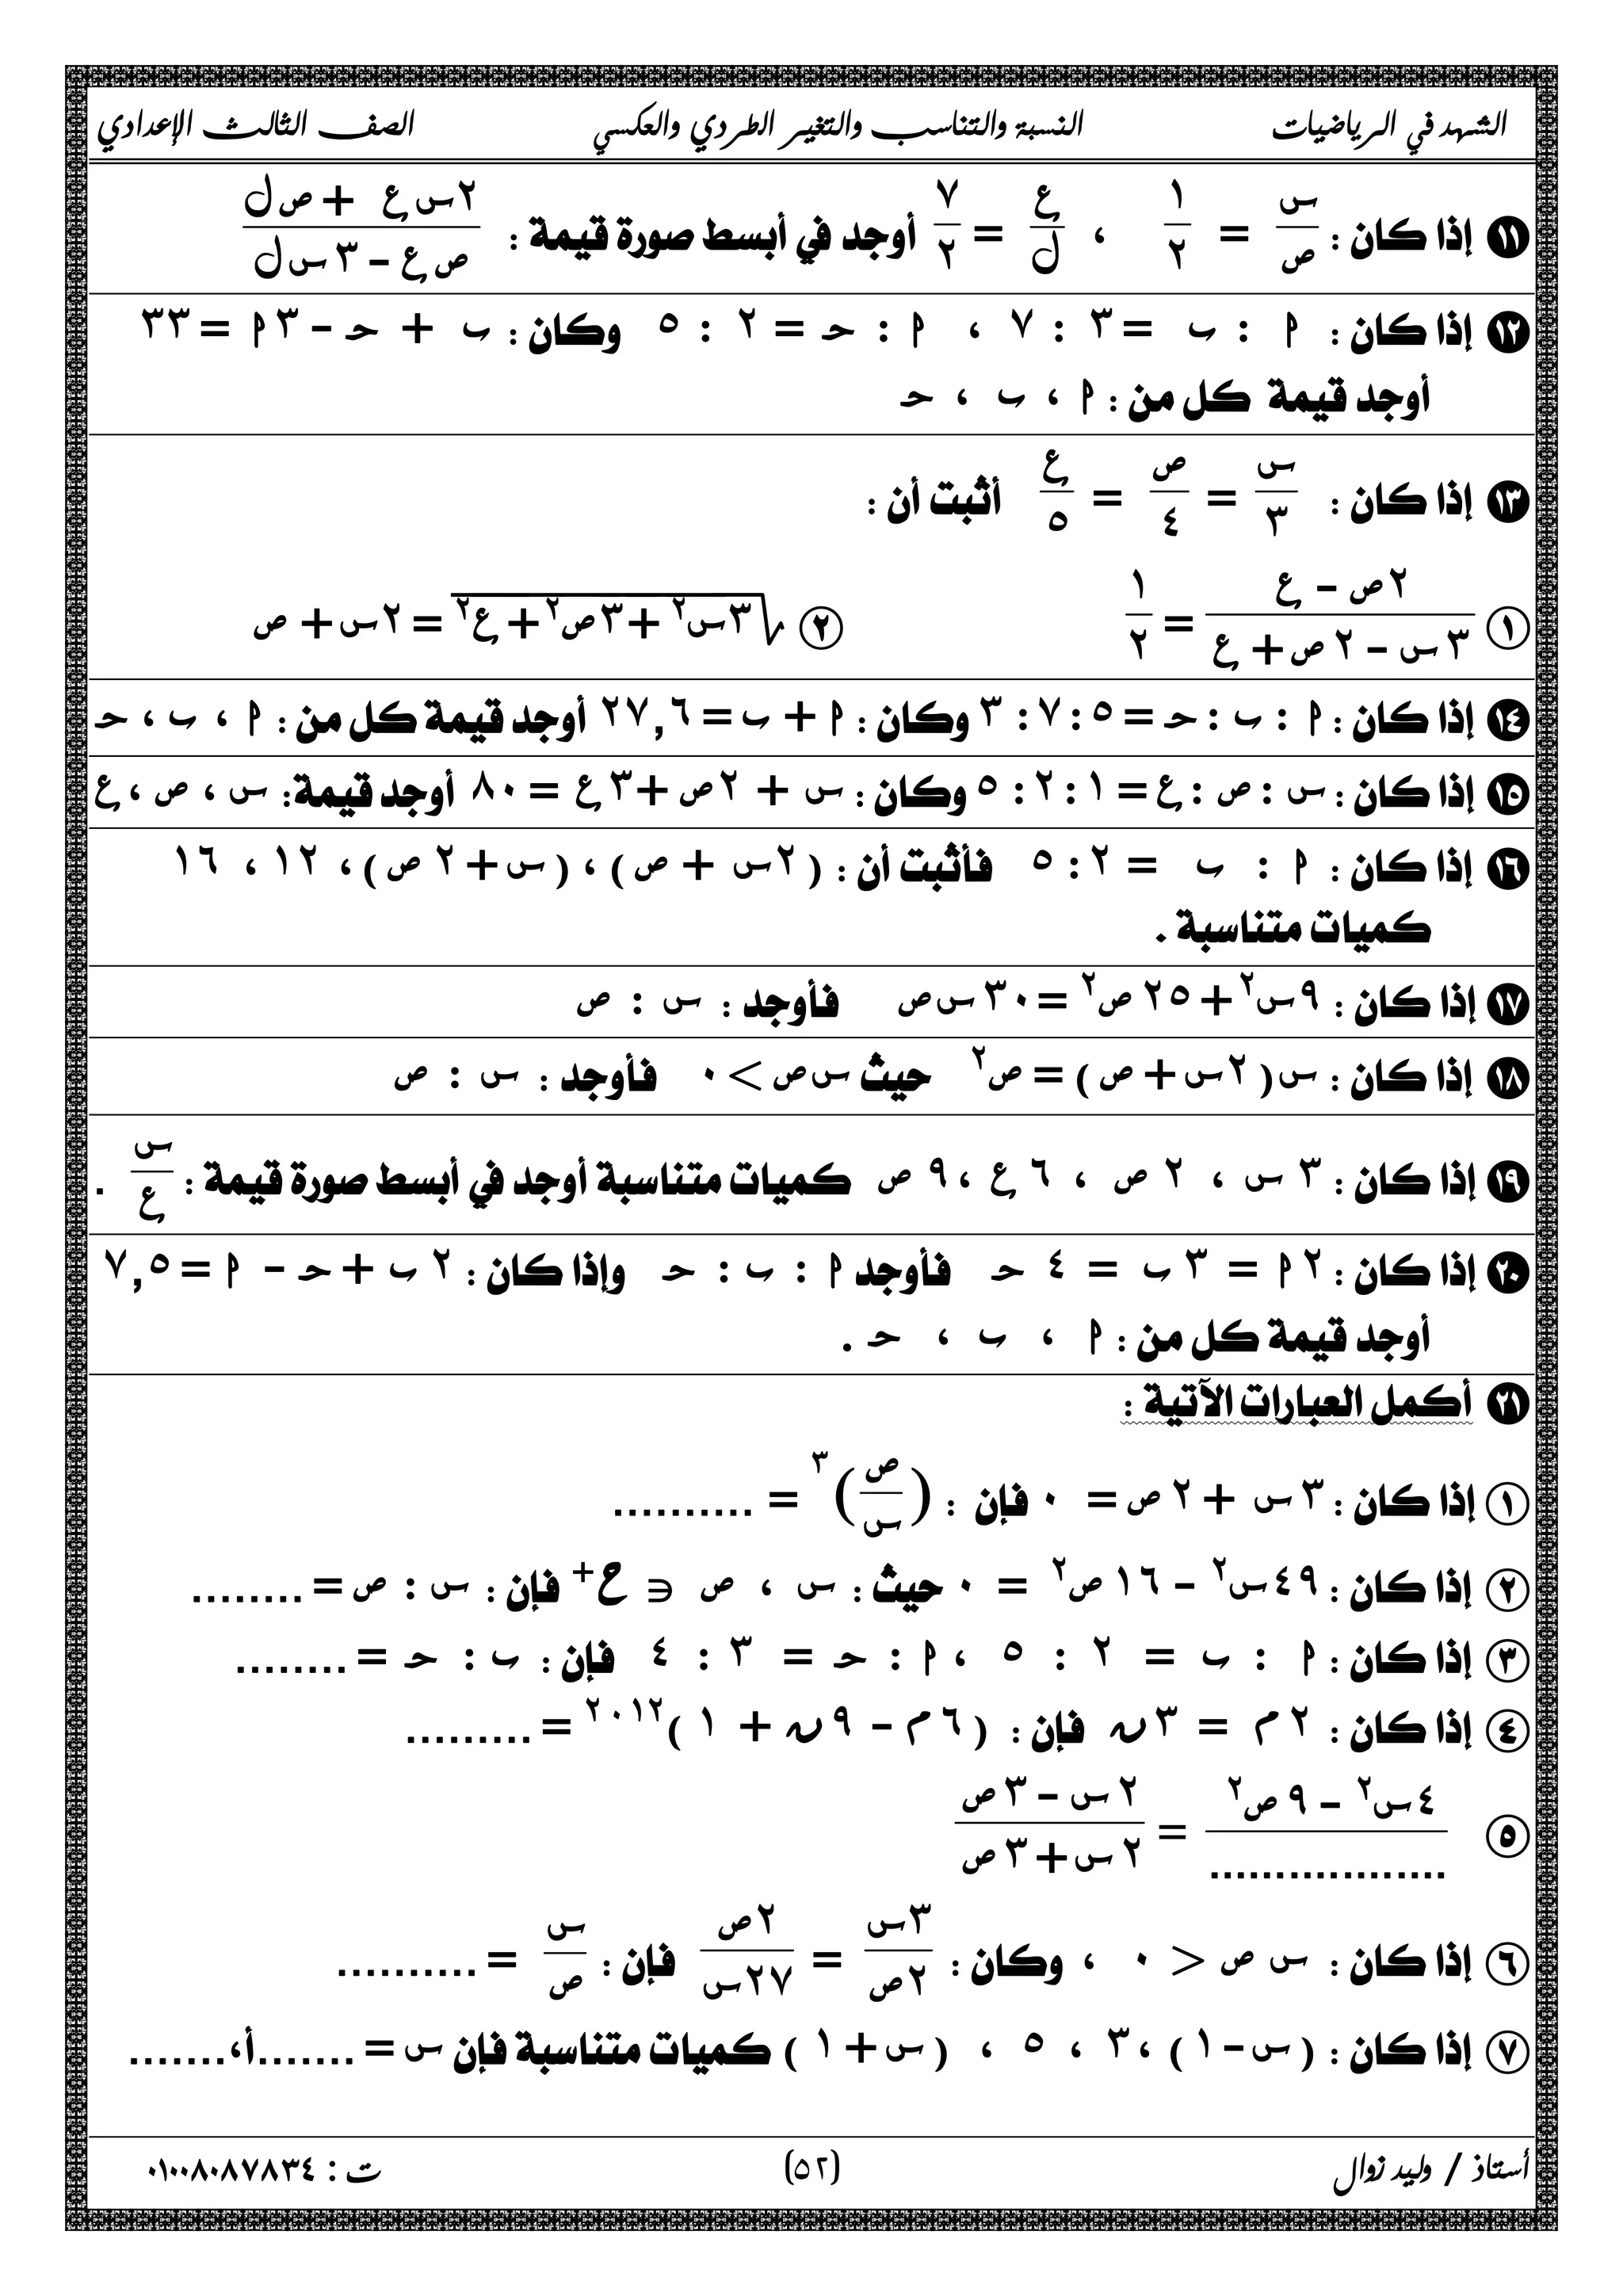 الشهد في الرياضيات النسبة والتناسب والتغير الطردي والعكسي الصف الثالث الإعدادي
١١ إذا كان : س/ص = ١/٢ ، ع/ل = ٧/٢ أوجد في أبسط صورة قيمة : (٢س ع + ص ل)/(ص ع – ٣س ل)
١٢ إذا كان : ا : ب = ٣ : ٧ ، ا : حـ = ٢ : ٥ وكان : ب + حـ – ٣ا = ٣٣
أوجد قيمة كل من : ا ، ب ، حـ
١٣ إذا كان : س/٣ = ص/٤ = ع/٥ أثبت أن :
① (٢ص – ع)/(٣س – ٢ص + ع) = ١/٢ ② √(٣س² + ٣ص² + ع²) = ٢س + ص
١٤ إذا كان : ا : ب : حـ = ٥ : ٧ : ٣ وكان : ا + ب = ٢٧,٦ أوجد قيمة كل من : ا ، ب ، حـ
١٥ إذا كان : س : ص : ع = ١ : ٢ : ٥ وكان : س + ٢ص + ٣ع = ٨٠ أوجد قيمة: س ، ص ، ع
١٦ إذا كان : ا : ب = ٢ : ٥ فأثبت أن : (٢س + ص) ، (س + ٢ص) ، ١٢ ، ١٦
كميات متناسبة .
١٧ إذا كان : ٩س² + ٢٥ص² = ٣٠س ص فأوجد : س : ص
١٨ إذا كان : س(٢س + ص) = ص² حيث س ص > ٠ فأوجد : س : ص
١٩ إذا كان : ٣س ، ٢ص ، ٦ع ، ٩ص كميات متناسبة أوجد في أبسط صورة قيمة : س/ع .
٢٠ إذا كان : ٢ا = ٣ب = ٤حـ فأوجد ا : ب : حـ وإذا كان : ٢ب + حـ – ا = ٧,٥
أوجد قيمة كل من : ا ، ب ، حـ .
٢١ أكمل العبارات الآتية :
① إذا كان : ٣س + ٢ص = ٠ فإن : (ص/س)³ = ..........
② إذا كان : ٤٩س² – ١٦ص² = ٠ حيث : س ، ص ∈ ح⁺ فإن : س : ص = ........
③ إذا كان : ا : ب = ٢ : ٥ ، ا : حـ = ٣ : ٤ فإن : ب : حـ = ........
④ إذا كان : ٢م = ٣ن فإن : (٦م – ٩ن + ١)^٢٠١٢ = .........
⑤ (٤س² – ٩ص²)/.................. = (٢س – ٣ص)/(٢س + ٣ص)
⑥ إذا كان : س ص < ٠ ، وكان : ٣س/٢ص = ٢ص/٢٧س فإن : س/ص = ..........
⑦ إذا كان : (س – ١) ، ٣ ، ٥ ، (س + ١) كميات متناسبة فإن س = .......أ، .......
أستاذ / وليد زوال (٥٢) ت : ٠١٠٠٨٠٨٧٨٣٤